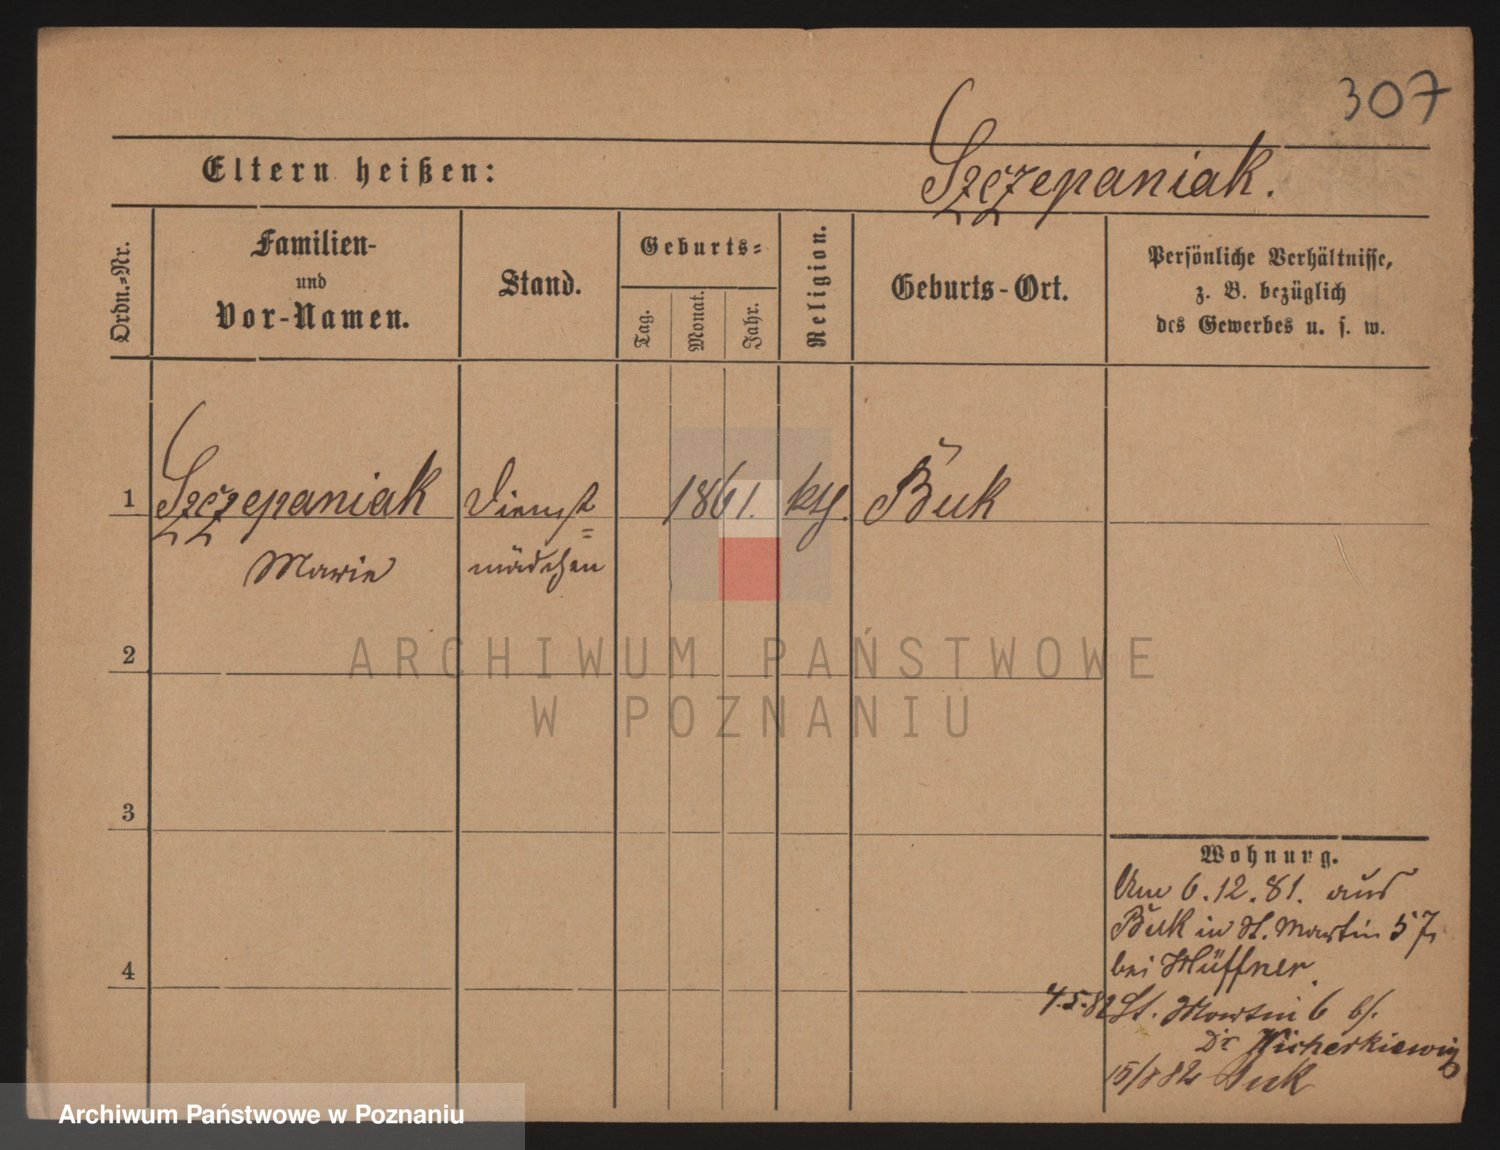 307
Eltern heißen:
Szczepaniak.
Ordn.-Nr.
Familien-
und
Vor-Namen.
Stand.
Geburts-
Tag.
Monat.
Jahr.
Religion.
Geburts-Ort.
Persönliche Verhältnisse,
z. B. bezüglich
des Gewerbes u. s. w.
1 Szczepaniak Dienst= 1861. kth. Buk
Marie mädchen
2
3
4
Wohnung.
Am 6.12.81. aus
Buk in St. Martin 57,
bei
4.5.82 St. Martin 6 b/.
Dr Wicherkiewicz
15/8 82 Buk
ARCHIWUM PAŃSTWOWE
W POZNANIU
Archiwum Państwowe w Poznaniu